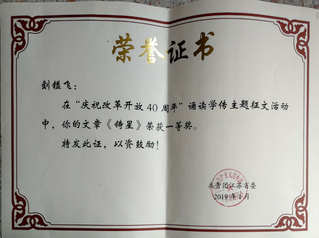 荣誉证书
刘铠飞：
在“庆祝改革开放40周年”诵读学传主题征文活动
中，你的文章《铸星》荣获一等奖。
特发此证，以资鼓励！
共青团江苏省委
2019年1月